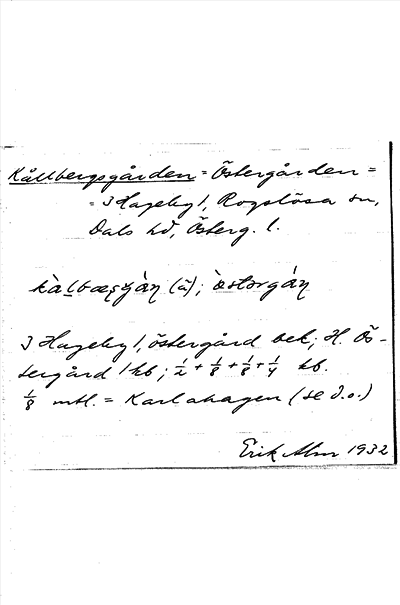 Kållbergsgården = Östergården =
= I Hageby 1, Rogslösa sn,
Dals hd, Österg. l.
kàlbæsgàn (ä); òstorgán
I Hageby 1, östergård bek; H. Ös-
tergård 1 kb; 1/2 + 1/8 + 1/8 + 1/4 kb.
1/8 mtl. = Karlahagen (se d.o.)
Erik Alm 1932